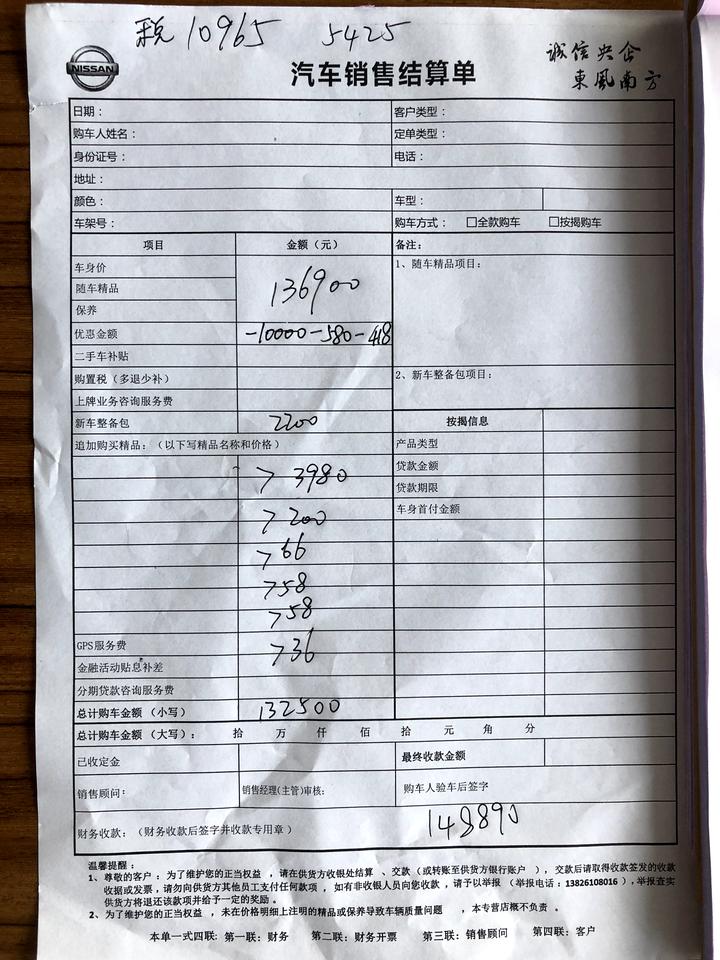 税 10965 5425
NISSAN
汽车销售结算单
诚信央企
東風南方
日期： 客户类型：
购车人姓名： 定单类型：
身份证号： 电话：
地址：
颜色： 车型：
车架号： 购车方式： □全款购车 □按揭购车
项目 金额（元） 备注：
车身价 1、随车精品项目：
随车精品 136900
保养
优惠金额 -10000-580-418
二手车补贴
购置税（多退少补） 2、新车整备包项目：
上牌业务咨询服务费
新车整备包 2200 按揭信息
追加购买精品：（以下写精品名称和价格） 产品类型
> 3980 贷款金额
贷款期限
> 200 车身首付金额
> 66
> 58
> 58
GPS服务费 > 36
金融活动贴息补差
分期贷款咨询服务费
总计购车金额（小写） 132500
总计购车金额（大写）： 拾 万 仟 佰 拾 元 角 分
已收定金 最终收款金额
销售顾问： 销售经理(主管)审核： 购车人验车后签字
财务收款：（财务收款后签字并收款专用章） 148890
温馨提醒：
1、尊敬的客户：为了维护您的正当权益 ，请在供货方收银处结算 、交款（或转账至供货方银行账户 ），交款后请取得收款签发的收款
收据或发票，请勿向供货方其他员工支付任何款项 ，如有非收银人员向您收款 ，请予以举报 （举报电话：13826108016），举报查实
供货方将退还该款项并给予一定的奖励 。
2、为了维护您的正当权益 ，未在价格明细上注明的精品或保养导致车辆质量问题 ，本专营店概不负责 。
本单一式四联：第一联：财务 第二联：财务开票 第三联：销售顾问 第四联：客户